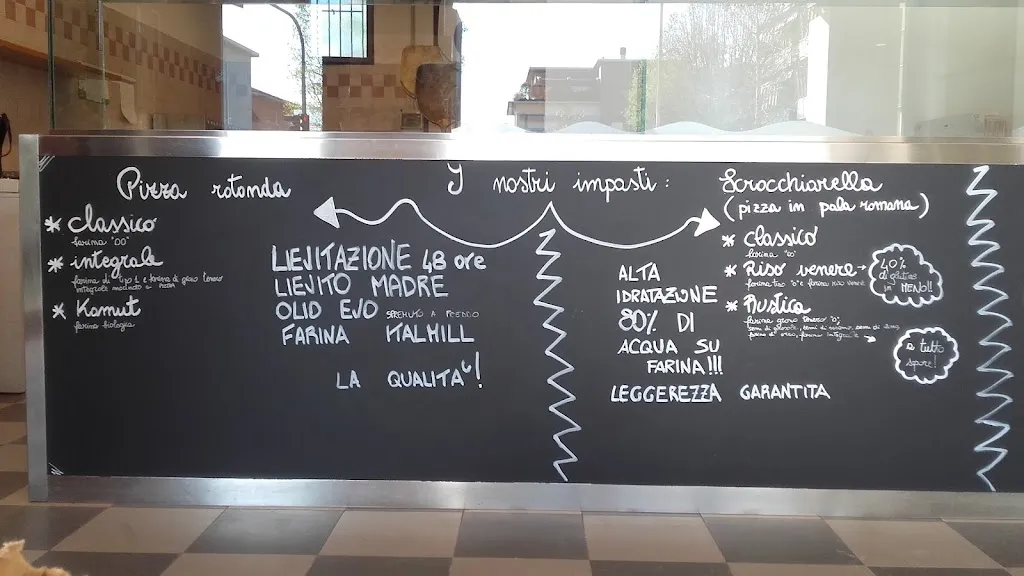 I nostri impasti:
Pizza rotonda
* classico
farina "00"
* integrale
farina di tipo 1 e farina di grano tenero
integrale macinato a pietra
* Kamut
farina biologica
LIEVITAZIONE 48 ore
LIEVITO MADRE
OLIO EVO SPREMUTO A FREDDO
FARINA KALMILL
LA QUALITA'!
Scrocchiarella
(pizza in pala romana)
* classico
farina "0"
* Riso venere
farina tipo "0" e farina riso venere
40%
di glutine
in MENO!!
* Rustica
farina grano tenero "0",
semi di girasole, semi di sesamo, semi di lino
farina integrale
e tutto
sapore!
ALTA
IDRATAZIONE
80% DI
ACQUA SU
FARINA!!!
LEGGEREZZA GARANTITA